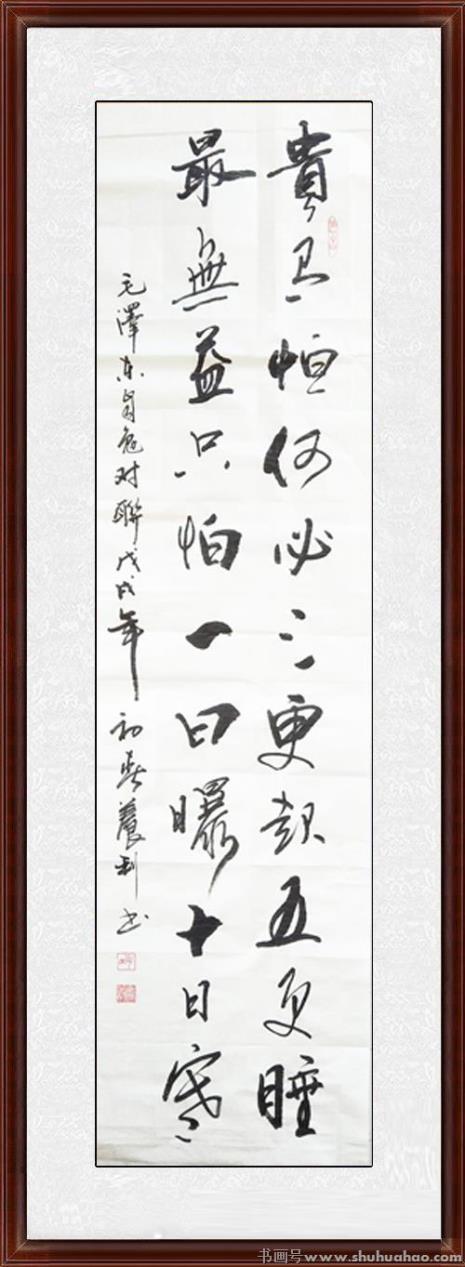 貴有恒何必三更起五更睡
最無益只怕一日曬十日寒
毛澤东自勉对聯戊戌年初春養利书
书画号www.shuhuahao.com